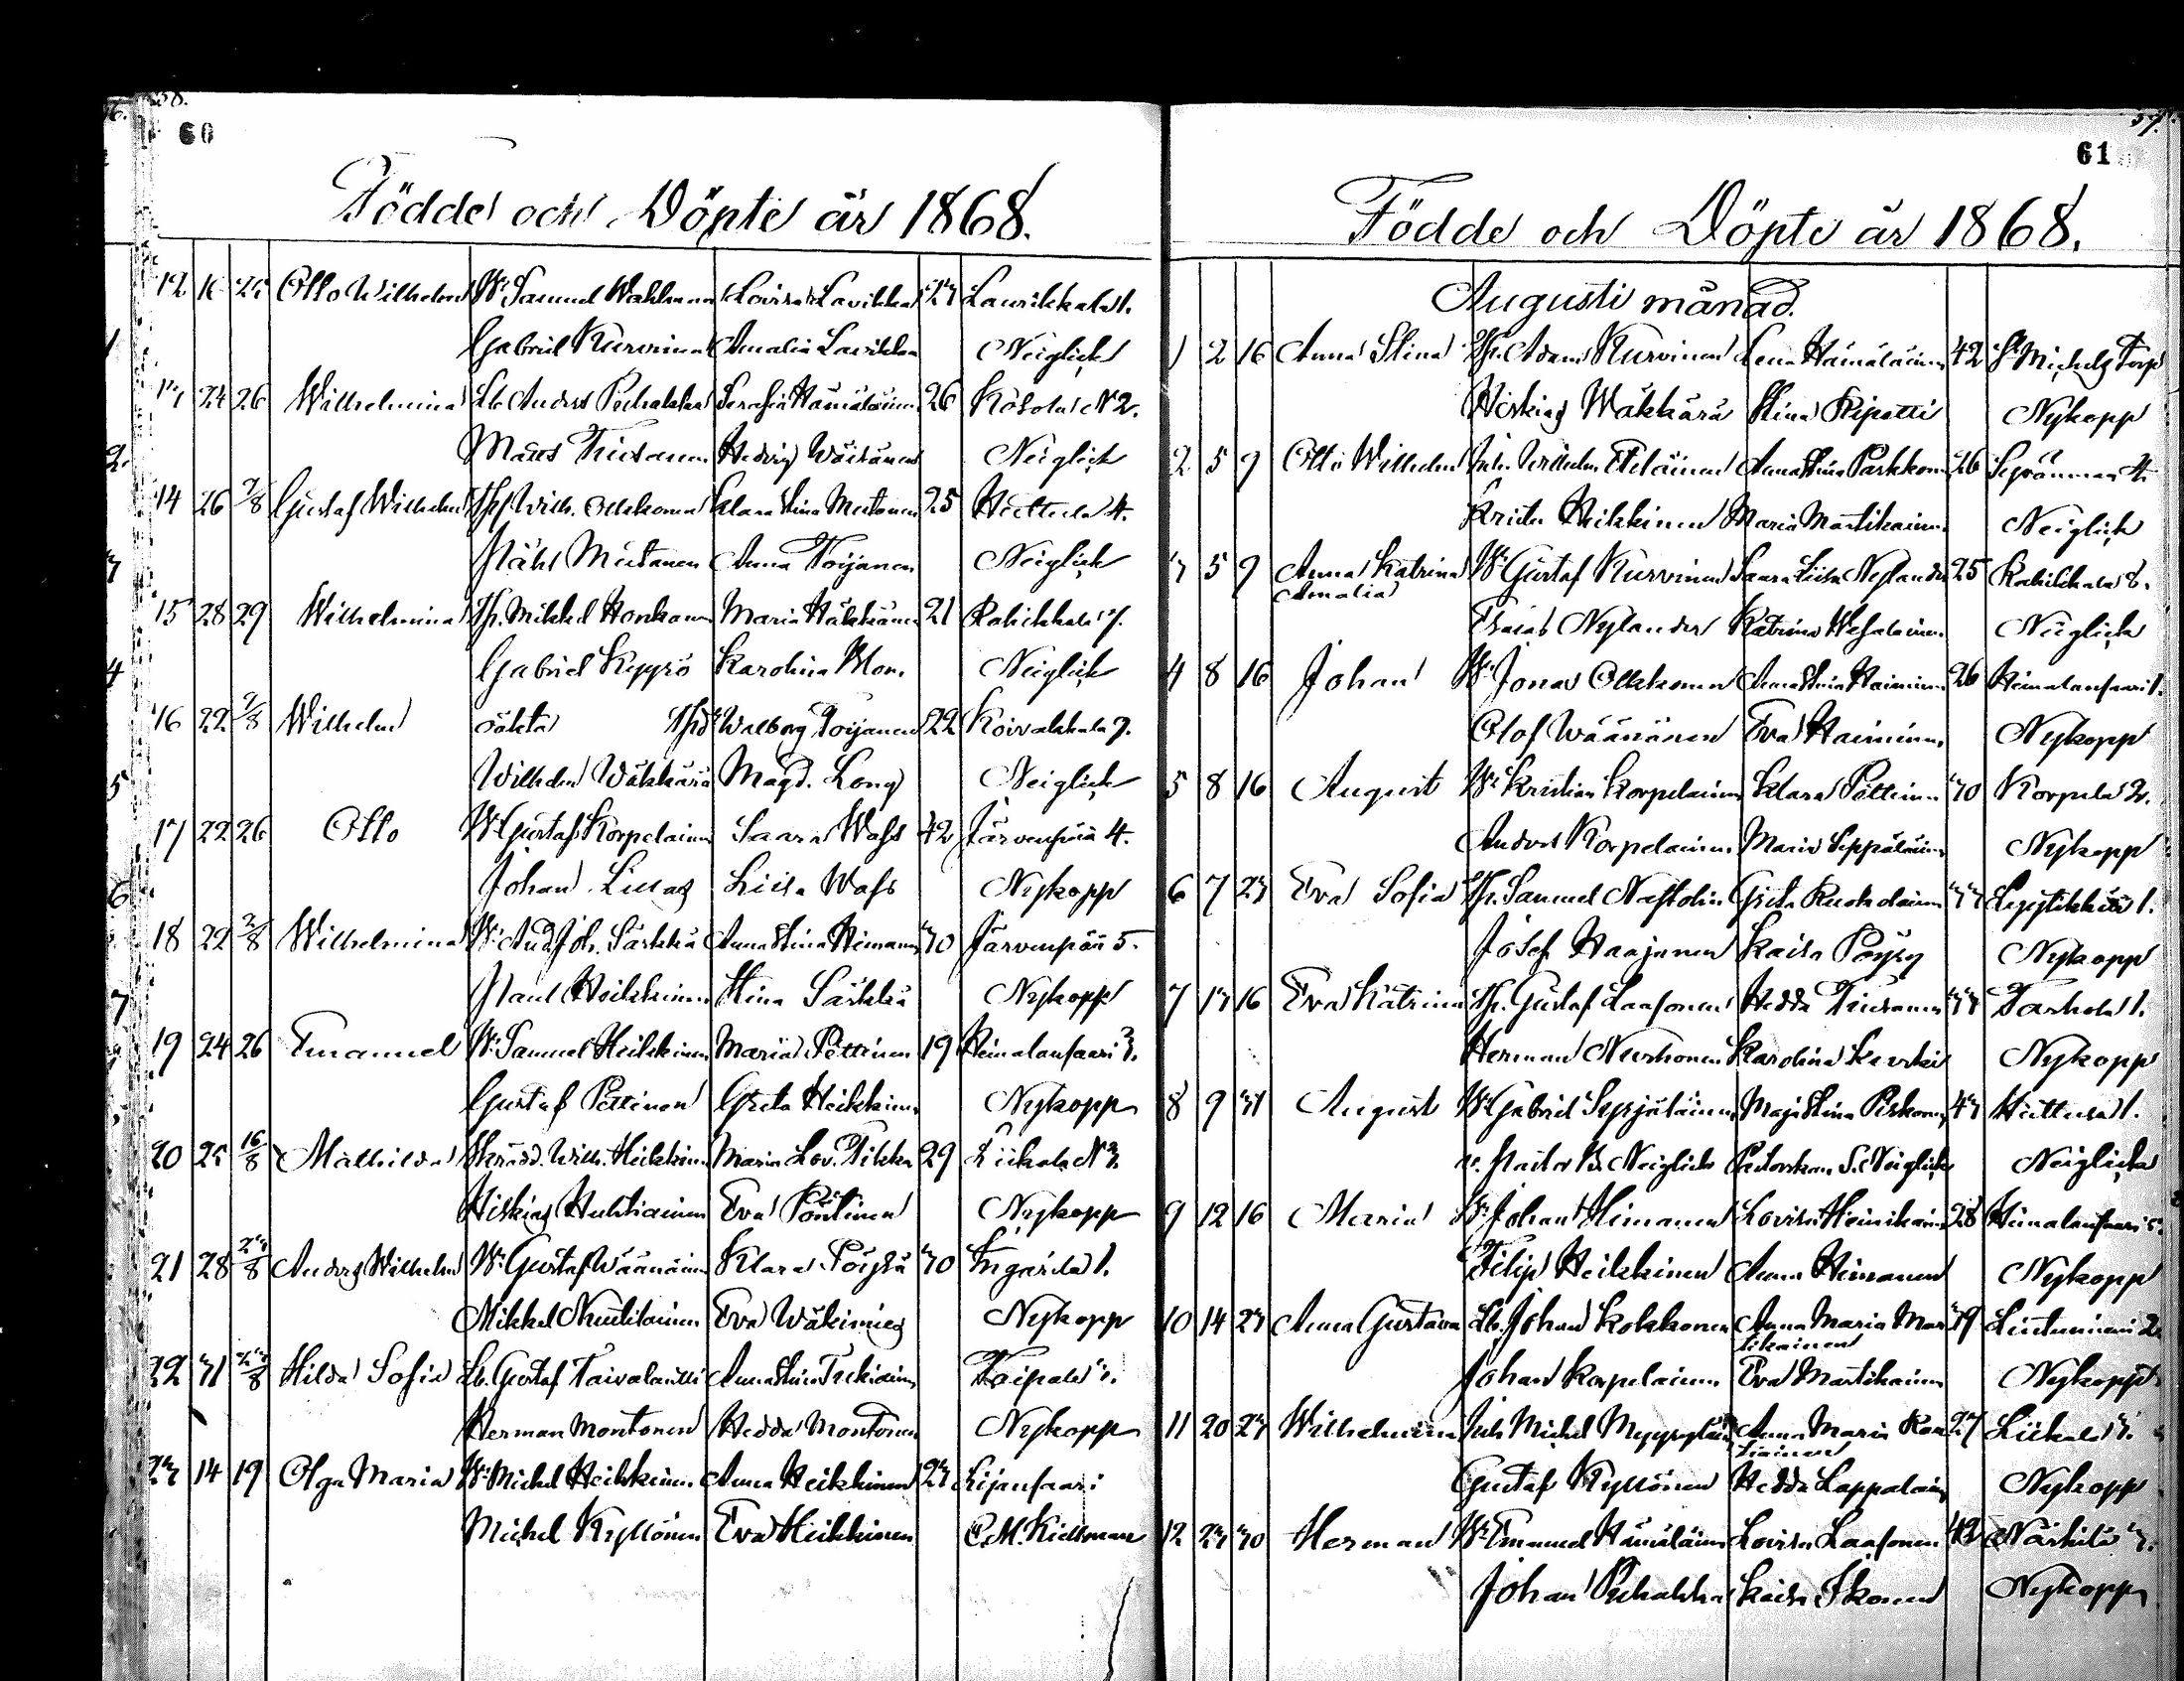 58.
60
Födde och Döpte år 1868.
12 16 Otto Wilhelm Samuel Lovisa Lavikka 23 Laurikkala 1.
Gabriel Kurvinen Amalia Lavikka Neiglick
13 24 26 Wilhelmina Lb. Anders Pehakka Serafia Hämäläinen 26 Kósola N 2.
Matts Tiusanen Hedvig Wäisänen Neiglick
14 26 2/8 Gustaf Wilhelm Wilh. Ollikonen Klara Stina Miutanen 25 Huttula 4.
Påhl Miutanen Anna Toijanen Neiglick
15 28 29 Wilhelmina Th. Mikkel Honkanen Maria Häkkänen 21 Rahikkala 7.
Gabriel Kyyrö Karolina Blom Neiglick
16 22 2/8 Wilhelm oäkta Walborg Poijanen 22 Koivakkala 7.
Wilhelm Wäkkärä Magd. Long Neiglick
17 22 26 Otto Gustaf Korpelainen Saara Wass 42 Järvenpää 4.
Johan Liisa Wass Nykopp
18 22 2/8 Wilhelmina And. Joh. Särkkä Anna Stina Himanen 30 Järvenpää 5.
Paul Heikkinen Stina Särkkä Nykopp
19 24 26 Emanuel Samuel Heikkinen Maria Pöttinen 19 Heimalansaari 3.
Gustaf Pöttinen Greta Heikkinen Nykopp
20 25 16/8 Mathilda Skrädd. Wilh. Heikkinen Maria Lov. Tikka 29 Liikala N 3.
Hiskias Huhtiainen Eva Pöntinen Nykopp
21 28 23/8 Anders Wilhelm Gustaf Wäänänen Klara Pöyhä 30 Ingarila 1.
Mikkel Nuutilainen Eva Wäkimies Nykopp
22 31 23/8 Hilda Sofia Lb. Gustaf Taivalantti Anna Stina Toipala 3.
Herman Montonen Hedda Montonen Nykopp
23 14 19 Olga Maria Michel Heikkinen Anna Heikkinen 23 Lijansaari
Michel Kyllönen Eva Heikkinen C.M. Kiellman
59.
61
Födde och Döpte år 1868.
Augusti månad.
1 2 16 Anna Stina Th. Adam Kurvinen Lena Hämäläinen 42 St Michels Torp
Hiskias Wäkkärä Stina Ripatti Nykopp
2 5 9 Otto Wilhelm Inh. Wilhelm Eteläinen Anna Stina Parkkonen 26 4.
Krister Heikkinen Maria Martikainen Neiglick
3 5 9 Anna Katrina Gustaf Kurvinen Saara Liisa Nylander 25 Rahikkala 8.
Amalia
Esaias Nylander Katrina Neiglick
4 8 16 Johan Jonas Ollikonen Anna Stina Haiminen 26 Heimalansaari 1.
Olof Wäänänen Eva Haiminen Nykopp
5 8 16 August Kristian Korpelainen Klara Pöttinen 30 Korpela 2.
Anders Korpelainen Maria Seppäläinen Nykopp
6 7 23 Eva Sofia Th. Samuel Nastolin Greta Ruokolainen 33 1.
Josef Haajanen Kaisa Pöyry Nykopp
7 13 16 Eva Katrina Th. Gustaf Laasonen Hedda Tiusanen 33 Tarhola 1.
Herman Nurhonen Karolina Kurki Nykopp
8 9 31 August Gabriel Syrjäläinen Maja Stina Piskonen 43 Huttula 1.
v. Pastor B. Neiglick Pastorskan S. Neiglick Neiglick
9 12 16 Maria Johan Himanen Lovisa Heinikainen 28 Heimalansaari 5.
Filip Heikkinen Anna Himanen Nykopp
10 14 23 Anna Gustava Lb. Johan Kokkonen Anna Maria Mar 39 Lintuniemi 2
tikainen
Johan Korpelainen Eva Martikainen Nykopp
11 20 23 Wilhelmina Inh Michel Myyryläinen Anna Maria 27 Liikala 3.
Gustaf Kyllönen Hedda Lappalainen Nykopp
12 23 30 Herman Emanuel Hämäläinen Lovisa Laasonen 42 Närhilä 3.
Johan Pehakka Kaisa Ikonen Nykopp